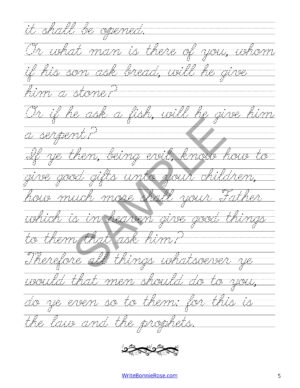 it shall be opened.
Or what man is there of you, whom
if his son ask bread, will he give
him a stone?
Or if he ask a fish, will he give him
a serpent?
If ye then, being evil, know how to
give good gifts unto your children,
how much more shall your Father
which is in heaven give good things
to them that ask him?
Therefore all things whatsoever ye
would that men should do to you,
do ye even so to them: for this is
the law and the prophets.
SAMPLE
WriteBonnieRose.com
5